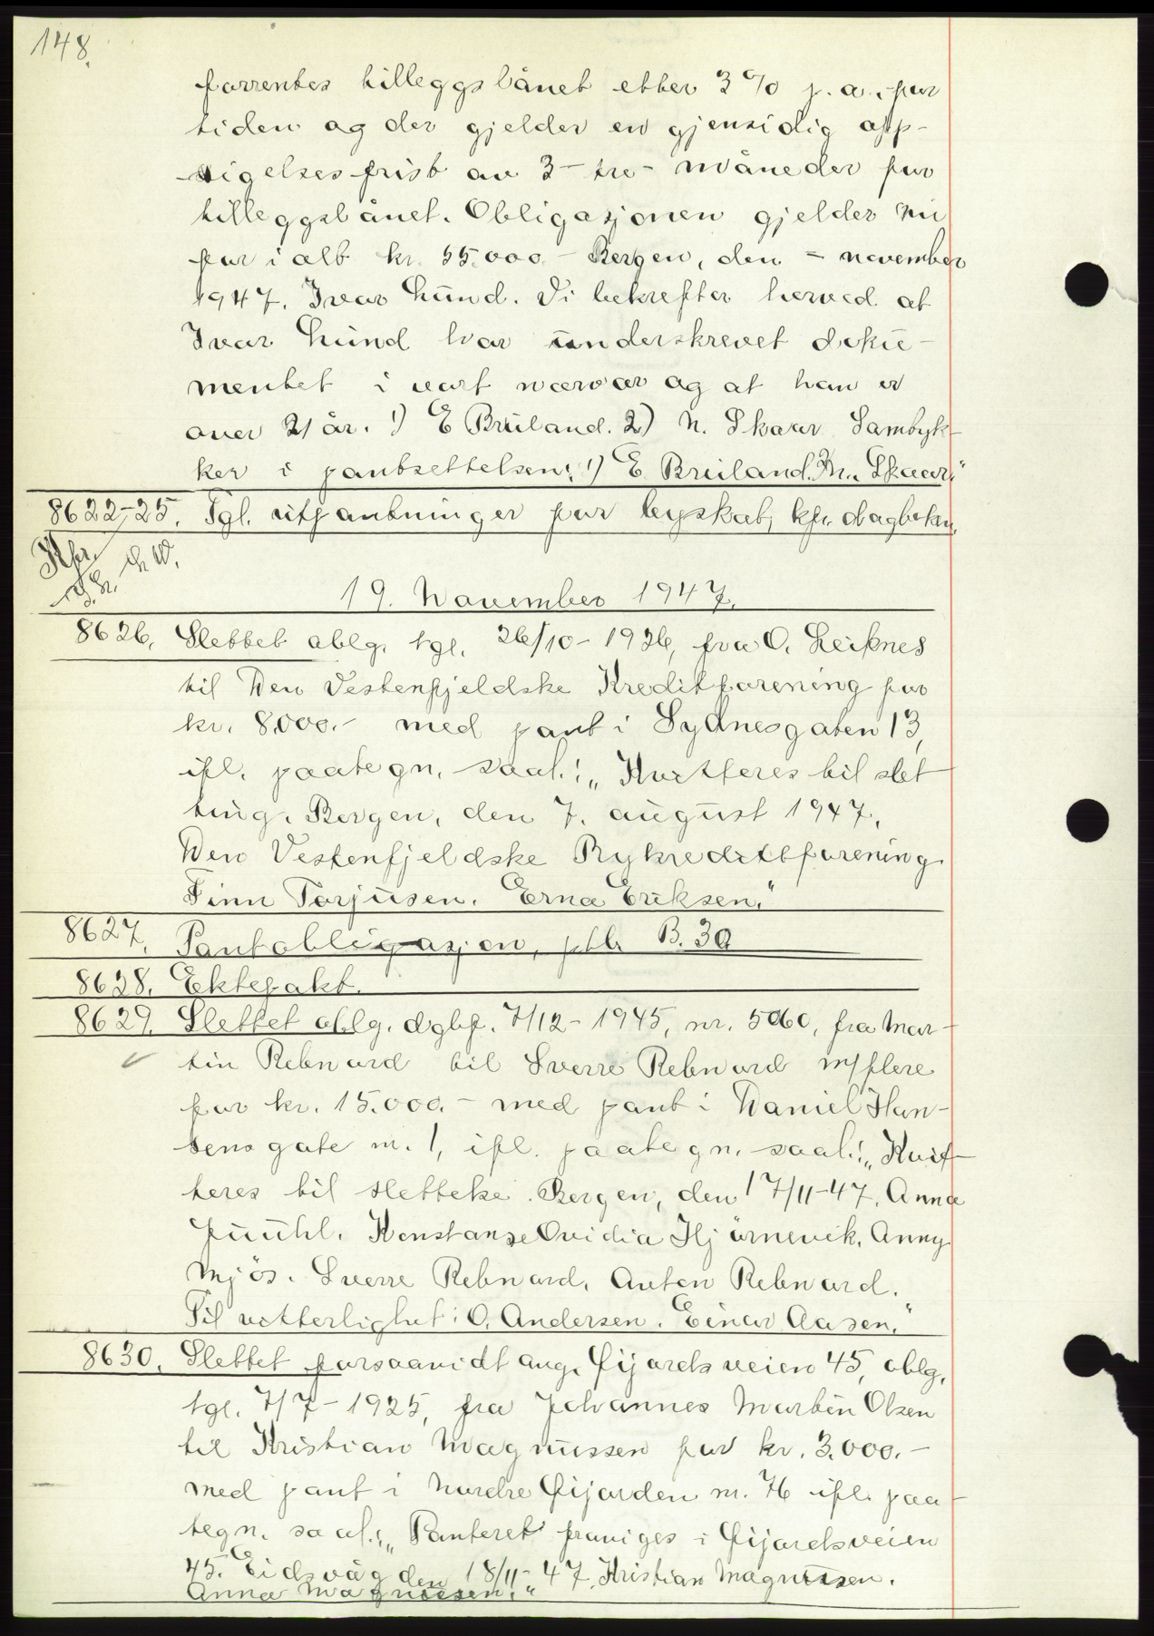 148.
forrentes tilleggslånet etter 3% p.a. for
tiden og der gjelder en gjensidig opp-
sigelsesfrist av 3 - tre - måneder for
tilleggslånet. Obligasjonen gjelder nu
for i alt kr. 55.000 - Bergen, den = november
1947. Ivar Lund. Vi bekrefter herved at
Ivar Lund har underskrevet doku-
mentet i vart nærvær og at han er
over 21 år. 1) E Bruland. 2) N. Skaar Samtyk-
ker i pantsettelsen: 1) E Bruland. N. Skaar."
8622-25. Tgl. utpantninger for byskatt, kfr. dagboken.
Kfr.
19. November 1947.
8626. Slettet oblg. tgl. 26/10-1926, fra O. Leiknes
til Den Vestenfjeldske Kreditforening for
kr. 8.000.- med pant i Sydnesgaten 13,
ifl. paategn. saal.: „Kvitteres til slet-
ting. Bergen, den 7. august 1947.
Den Vestenfjeldske Bykredittforening
Finn Torjusen. Erna Eriksen."
8627. Pantobligasjon, ptb. B. 30
8628. Ektepakt.
8629. Slettet oblg. dgbf. 7/12-1945, nr. 5060, fra Mar-
tin Rebnord til Sverre Rebnord m/flere
for kr. 15.000.- med pant i Daniel Han-
sens gate nr. 1, ifl. paategn. saal.: „Kvit-
teres til slettelse. Bergen, den 17/11-47. Anna
Juuhl. Konstanse Ovidia Hjörnevik. Anny
Mjös. Sverre Rebnord. Anton Rebnord.
Til vitterlighet: O. Andersen. Einar Aasen."
8630. Slettet forsaavidt ang. Öijordsveien 45, oblg.
tgl. 7/7-1925, fra Johannes Martin Olsen
til Kristian Magnussen for kr. 3.000.-
med pant i Nordre Öijorden nr. 76 ifl. paa-
tegn. saal.: „Panteret fraviges i Öijordsveien
45. Eidsvåg den 18/11-47. Kristian Magnussen.
Anna Magnussen."